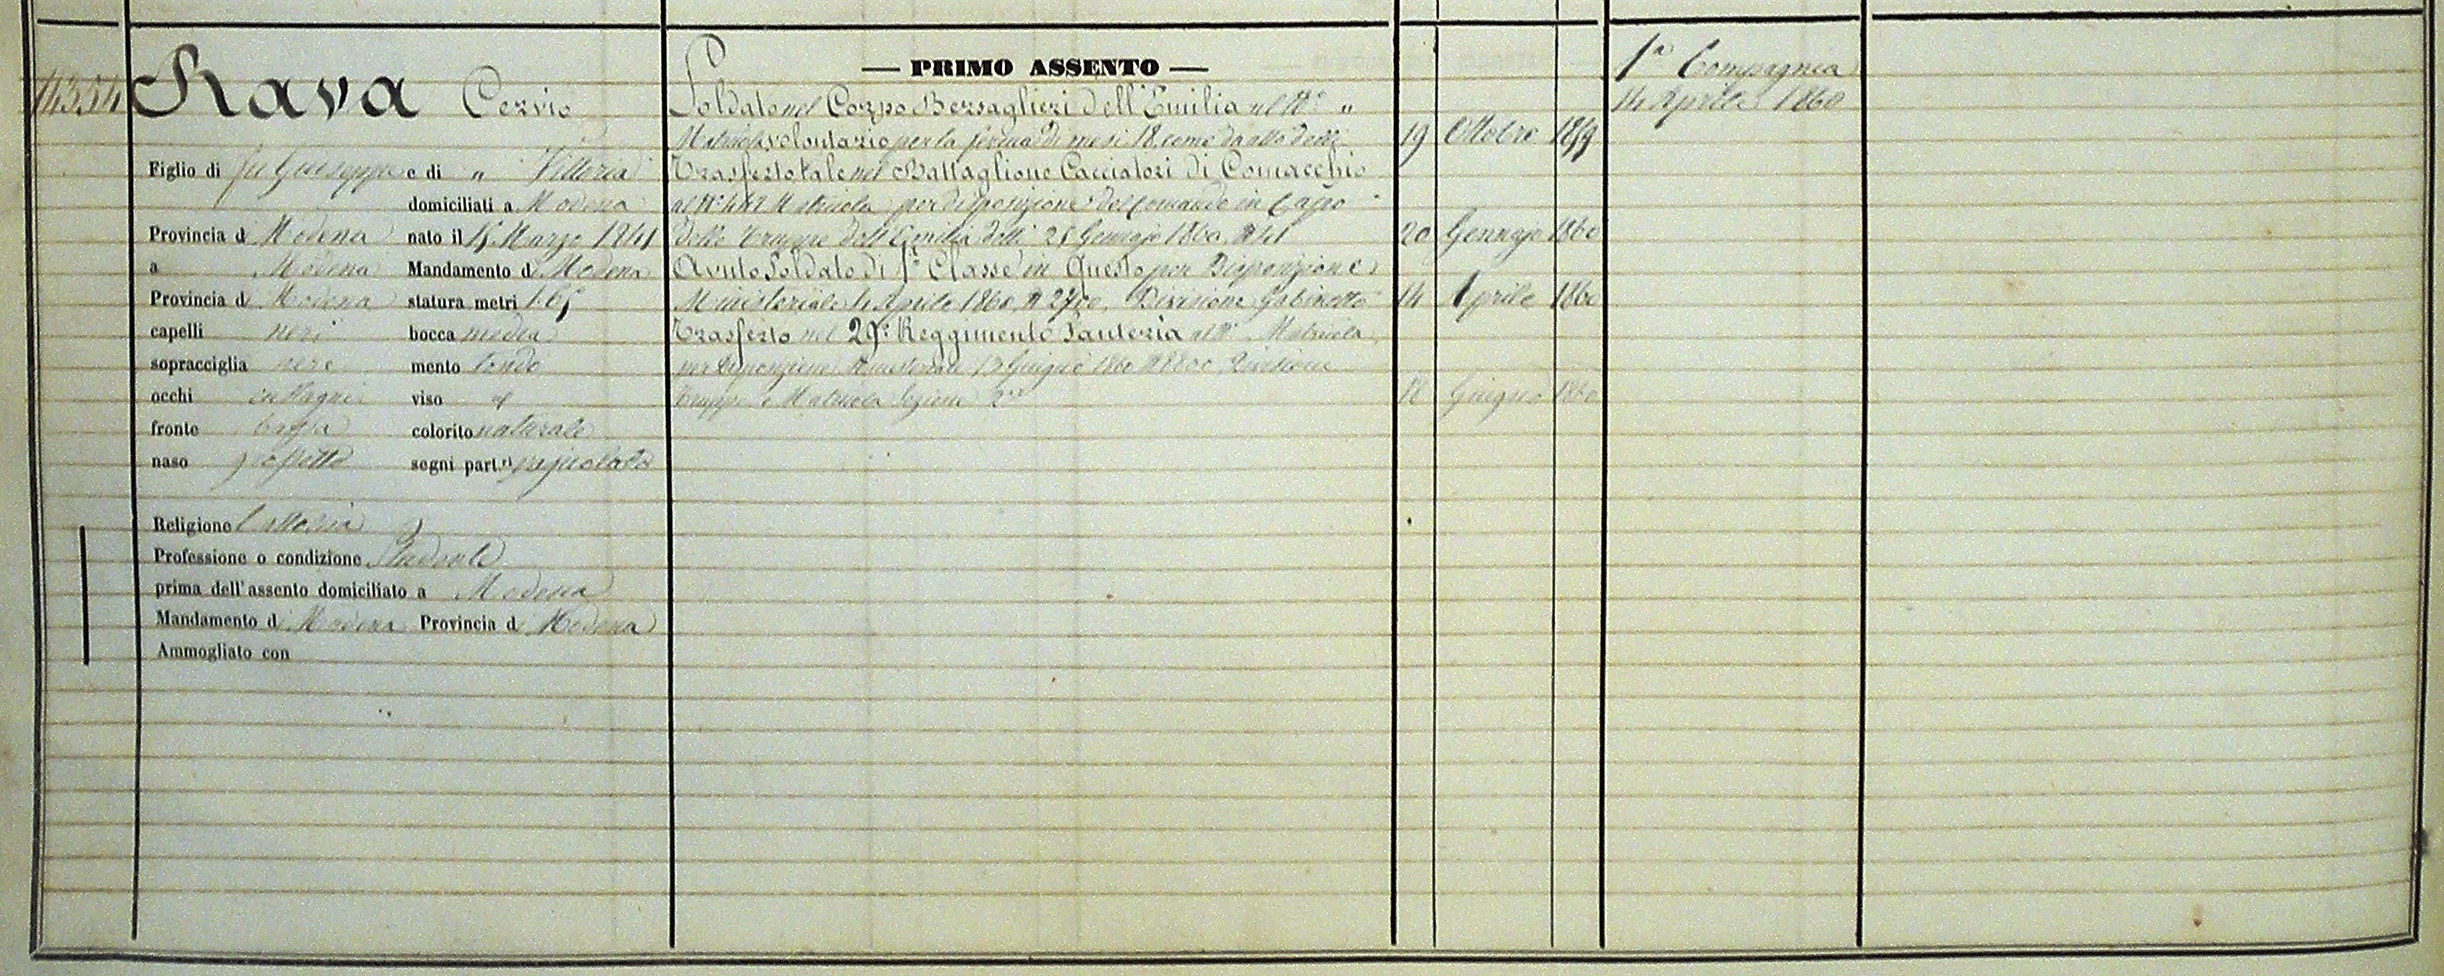 14554
Rava Cervio
Figlio di fu Giuseppe e di " Vittoria
domiciliati a Modena
Provincia di Modena nato il 15 Marzo 1841
a Modena Mandamento di Modena
Provincia di Modena statura metri 1.65
capelli neri bocca media
sopracciglia nere mento tondo
occhi castagni viso
fronte bassa colorito naturale
naso segni part.ri
Religione Cattolica
Professione o condizione Studente
prima dell'assento domiciliato a Modena
Mandamento di Modena Provincia di Modena
Ammogliato con
— PRIMO ASSENTO —
Soldato nel Corpo Bersaglieri dell'Emilia al N.° "
Matricola volontario per la ferma di mesi 18 come da atto delli 19 Ottobre 1859
Trasferto tale nel Battaglione Cacciatori di Comacchio
al N.° Matricola per disposizione del Comando in Capo
delle Truppe dell'Emilia delli 25 Gennajo 1860 N 41 20 Gennajo 1860
Avuto Soldato di 1.a Classe in Questo per Disposizione
Ministeriale 4 Aprile 1860 N 2700. Divisione Gabinetto 14 Aprile 1860
Trasferto nel 29.° Reggimento Fanteria al N.° Matricola
per disposizione Ministeriale 13 Giugno 1860 N Divisione
Truppe e Matricola Sezione 18 Giugno 1860
1.a Compagnia
14 Aprile 1860